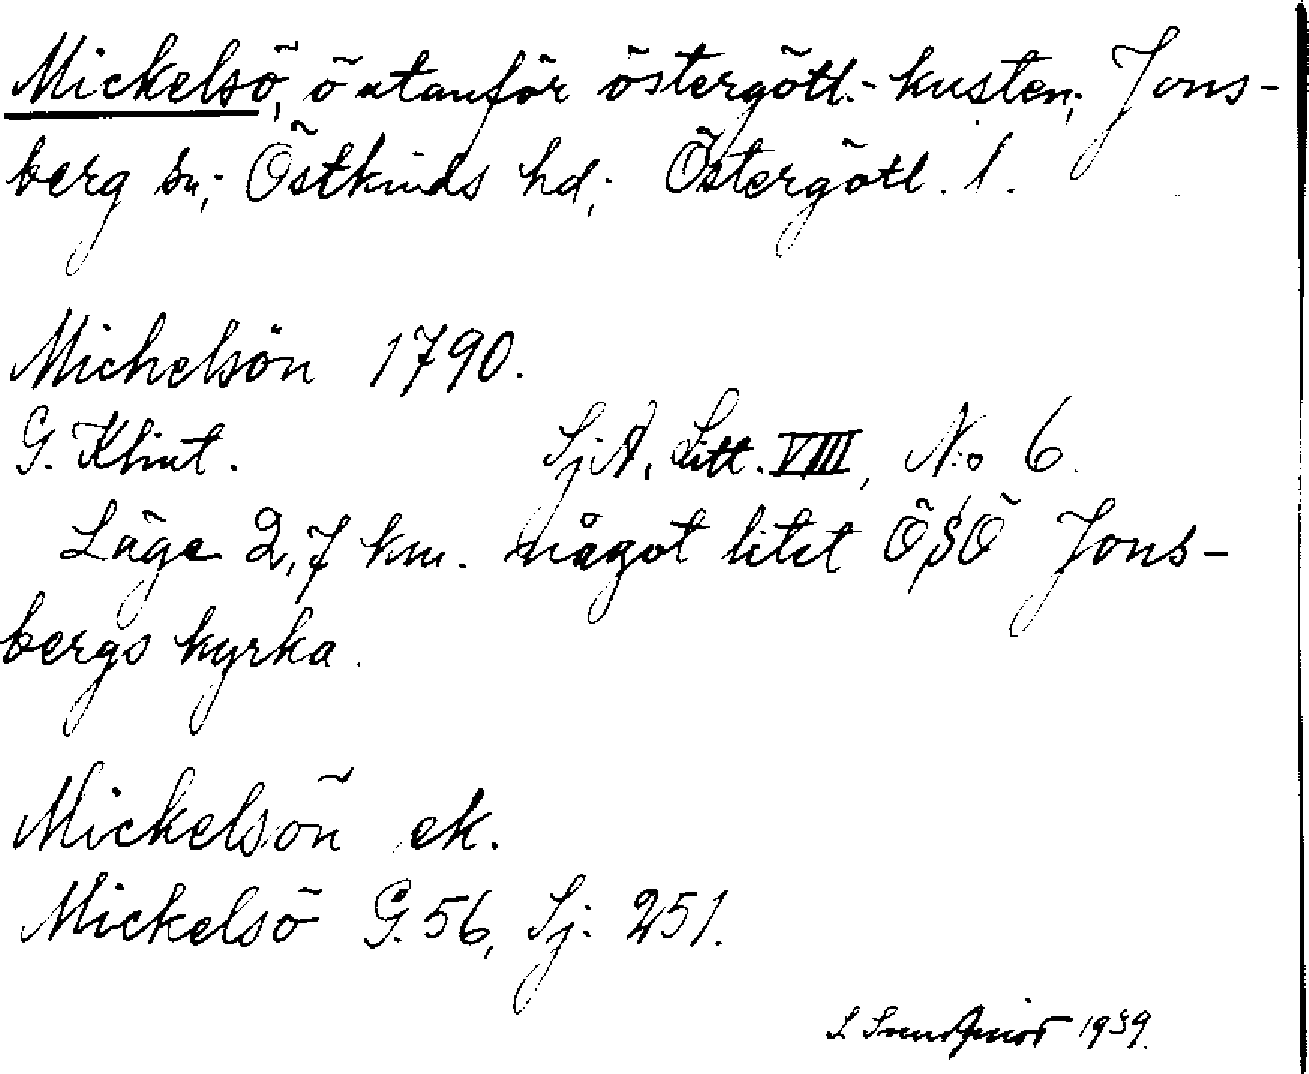 Mickelsö, ö utanför östergötl.-kusten; Jons-
berg sn; Östkinds hd; Östergötl. l.
Michelsön 1790.
G. Klint. SjA, Litt. VIII, No 6.
Läge 2,7 km. något litet ÖSÖ Jons-
bergs kyrka.
Mickelsön ek.
Mickelsö G. 56, Sj. 251.
1939.